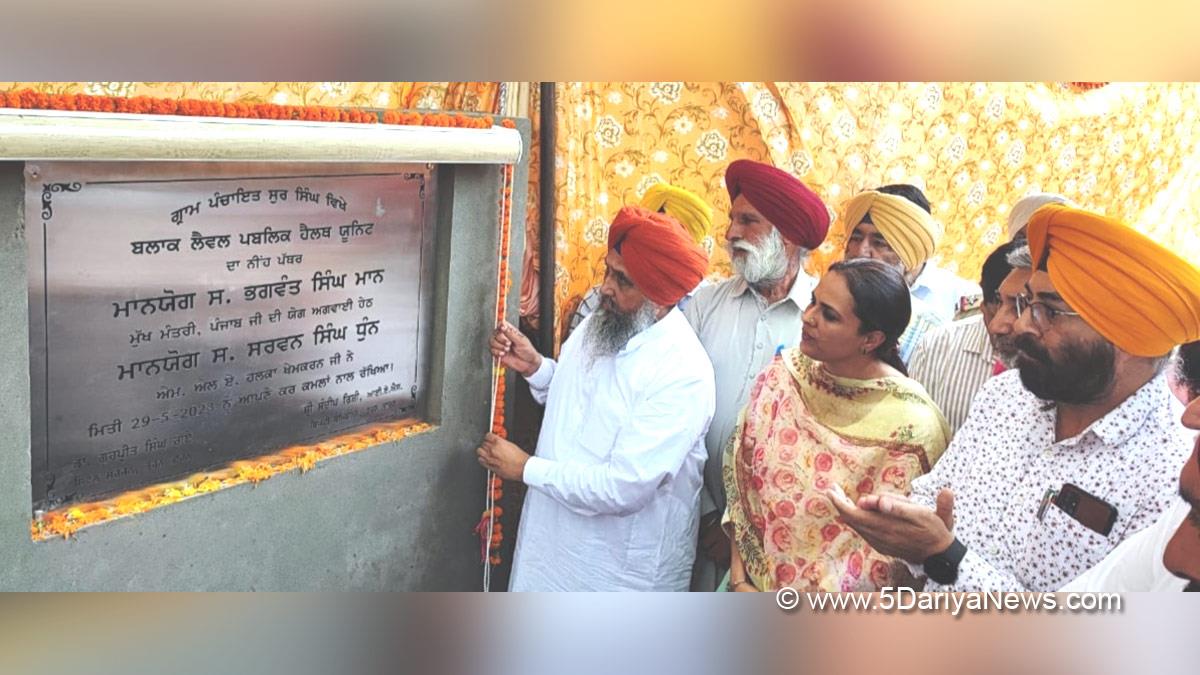 ਗ੍ਰਾਮ ਪੰਚਾਇਤ ਸੁਰ ਸਿੰਘ ਵਿਖੇ
ਬਲਾਕ ਲੈਵਲ ਪਬਲਿਕ ਹੈਲਥ ਯੂਨਿਟ
ਦਾ ਨੀਂਹ ਪੱਥਰ
ਮਾਨਯੋਗ ਸ. ਭਗਵੰਤ ਸਿੰਘ ਮਾਨ
ਮੁੱਖ ਮੰਤਰੀ, ਪੰਜਾਬ ਜੀ ਦੀ ਯੋਗ ਅਗਵਾਈ ਹੇਠ
ਮਾਨਯੋਗ ਸ. ਸਰਵਨ ਸਿੰਘ ਧੁੰਨ
ਐਮ. ਅਲ ਏ. ਹਲਕਾ ਖੇਮਕਰਨ ਜੀ ਨੇ
ਮਿਤੀ 29-5-2023 ਨੂੰ ਆਪਣੇ ਕਰ ਕਮਲਾਂ ਨਾਲ ਰੱਖਿਆ।
ਸ਼੍ਰੀ ਸੰਦੀਪ ਰਿਸ਼ੀ, ਆਈ.ਏ.ਐਸ.
ਡਾ. ਗੁਰਪ੍ਰੀਤ ਸਿੰਘ ਰਾਏ
© www.5DariyaNews.com